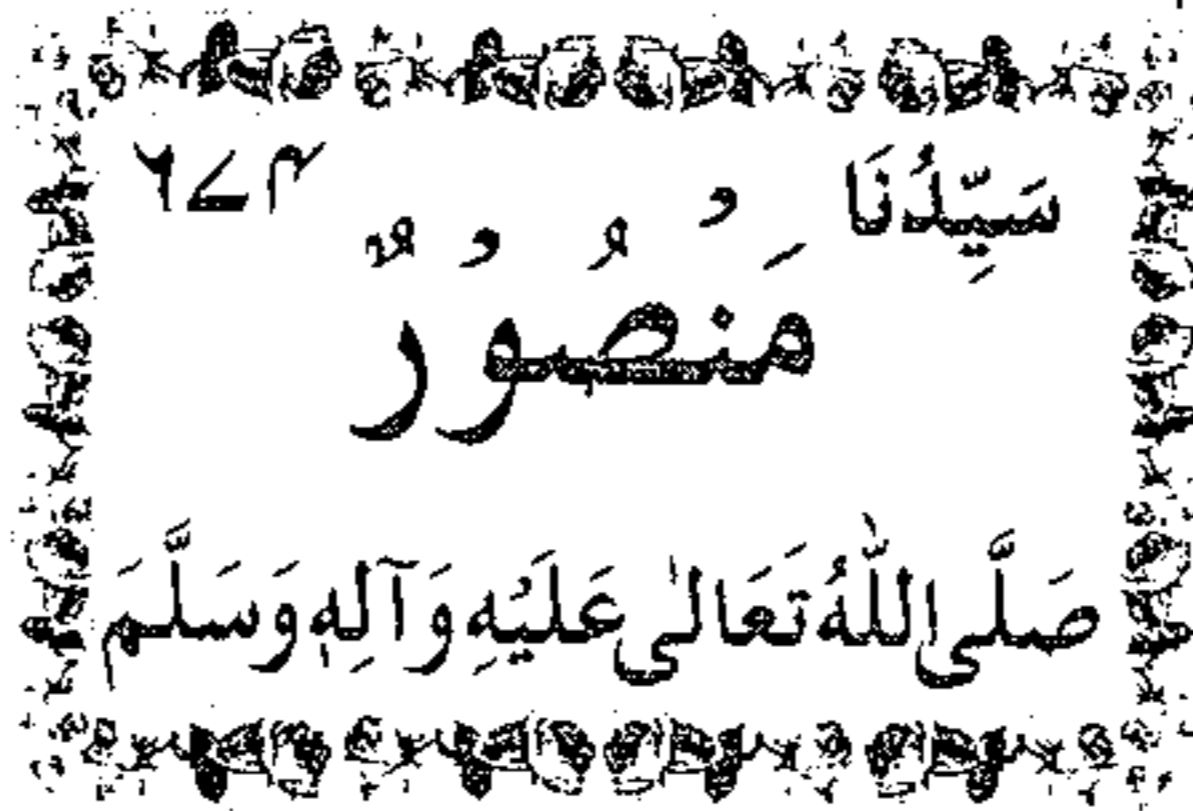 سَيِّدُنَا ۶۷۴
مَنْصُوْرٌ
صَلَّى اللّٰهُ تَعَالٰى عَلَيْهِ وَآلِهٖ وَسَلَّمَ